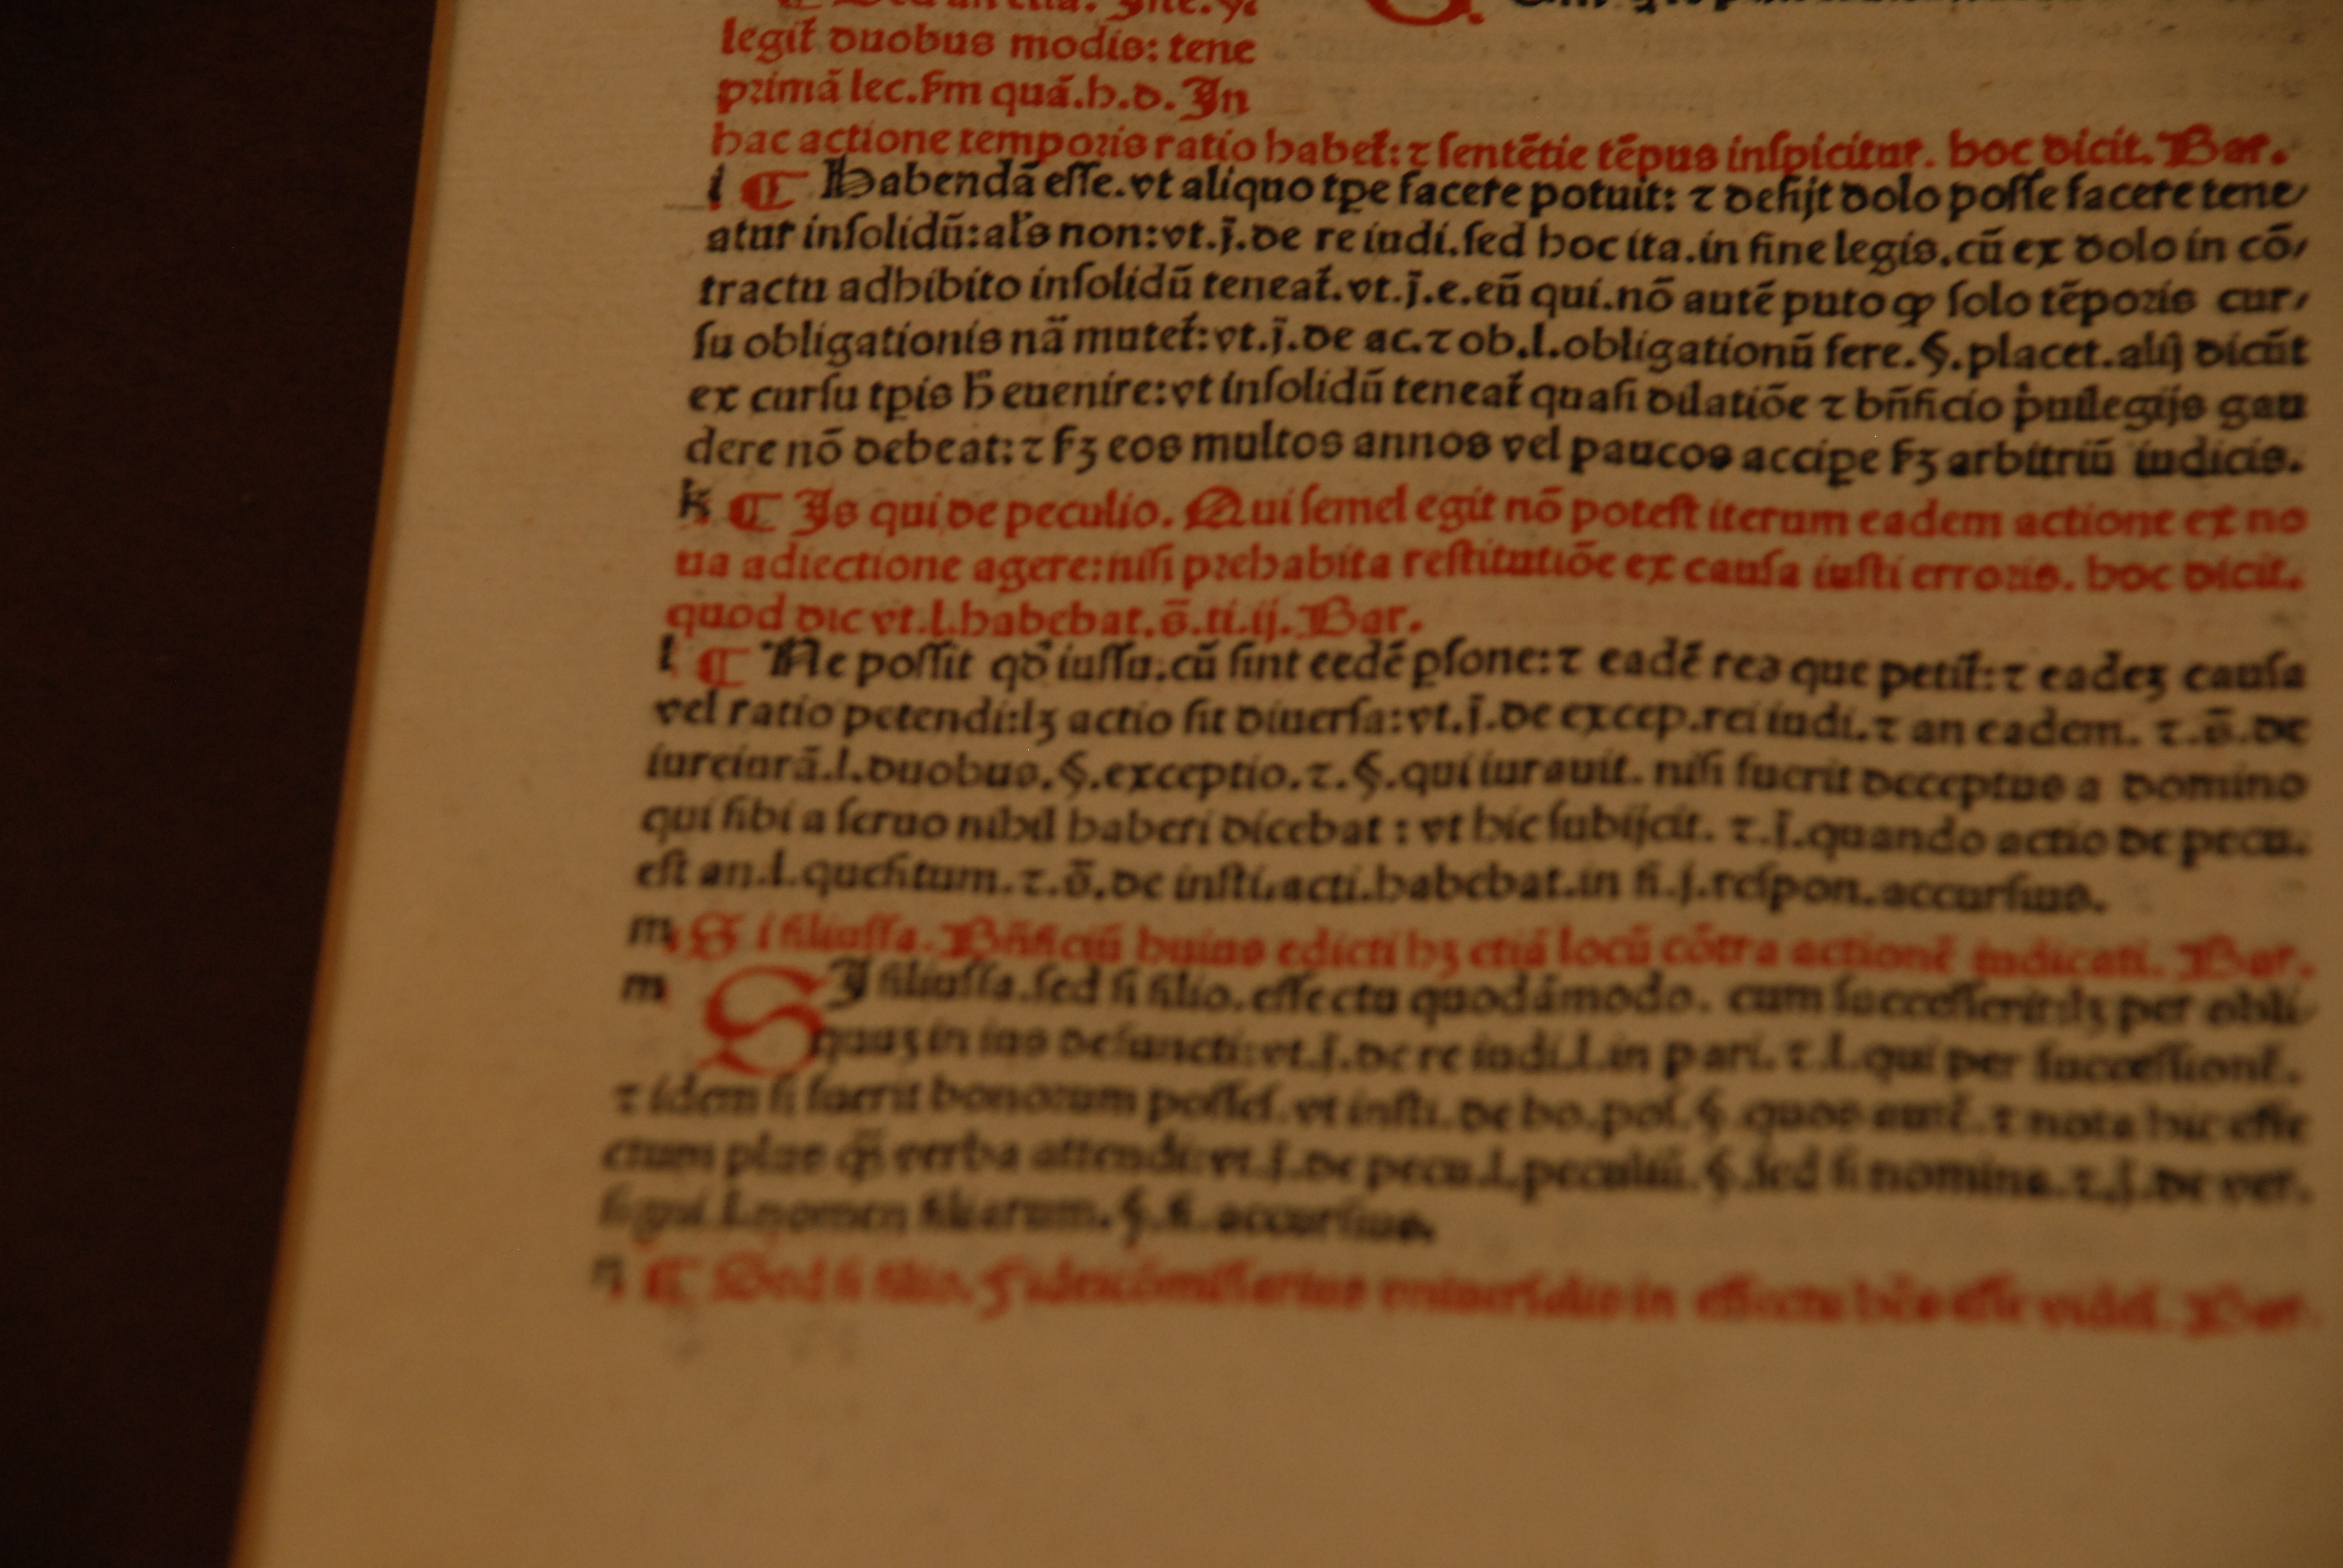 legit̃ duobus modis: tene
primã lec. s̃m quã.h.d. In
hac actione temporis ratio habet̃: ⁊ sentẽtie tẽpus inspicitur. hoc dicit. Bar.
i ¶ Habendã esse. vt aliquo tp̱e facere potuit: ⁊ desijt dolo posse facere tene/
atur insolidũ: al's non: vt.j̃.de re iudi. sed hoc ita.in fine legis.cũ ex dolo in cõ/
tractu adhibito insolidũ teneat̃.vt.j̃.e.eũ qui.nõ autẽ puto ꝙ solo tẽporis cur/
su obligationis nã mutet̃: vt.j̃.de ac.⁊ ob.l.obligationũ fere.§.placet.alij dicũt
ex cursu tp̱is h̃ euenire: vt insolidũ teneat̃ quasi dilatiõe ⁊ bñficio p̓uilegijs gau
dere nõ debeat: ⁊ sꝫ eos multos annos vel paucos accipe sꝫ arbitriũ iudicis.
k ¶ Is qui de peculio. Qui semel egit nõ potest iterum eadem actione ex no
ua adiectione agere: nisi prehabita restitutiõe ex causa iusti erroris. hoc dicit.
quod dic vt.l.habebat.s̃.ti.ij. Bar.
l ¶ Ne possit qđ iussu.cũ sint eedẽ ꝑsone: ⁊ eadẽ res que petit̃: ⁊ eadeꝫ causa
vel ratio petendi: lꝫ actio sit diuersa: vt.j̃.de excep.rei iudi.⁊ an eadem. ⁊.s̃.de
iureiurã.l.duobus.§.exceptio.⁊.§.qui iurauit. nisi fuerit deceptus a domino
qui sibi a seruo nihil haberi dicebat: vt hic subijcit. ⁊.j̃.quando actio de pecu.
est an.l.quesitum.⁊.s̃.de insti.acti.habebat.in fi.j.respon.accursius.
m Si filiusfa. Bñficiũ huius edicti hꝫ etiã locũ cõtra actionẽ iudicati. Bar.
m SI filiusfa.sed si filio.effectu quodãmodo. cum successerit: lꝫ per obli/
quaꝫ in ius defuncti: vt.j̃.de re iudi.l.in pari. ⁊.l.qui per successionẽ.
⁊ idem si fuerit bonorum posses. vt insti.de bo.pos.§.quos autẽ.⁊ nota hic effe
ctum plus q̃ȝ verba attendi: vt.j̃.de pecu.l.peculiũ.§.sed si nomine.⁊.j̃.de ver.
signi.l.nomen filiarum.§.fi.accursius.
n ¶ Sed si filio. Fideicõmissarius vniuersalis in effectu videt̃. Bar.